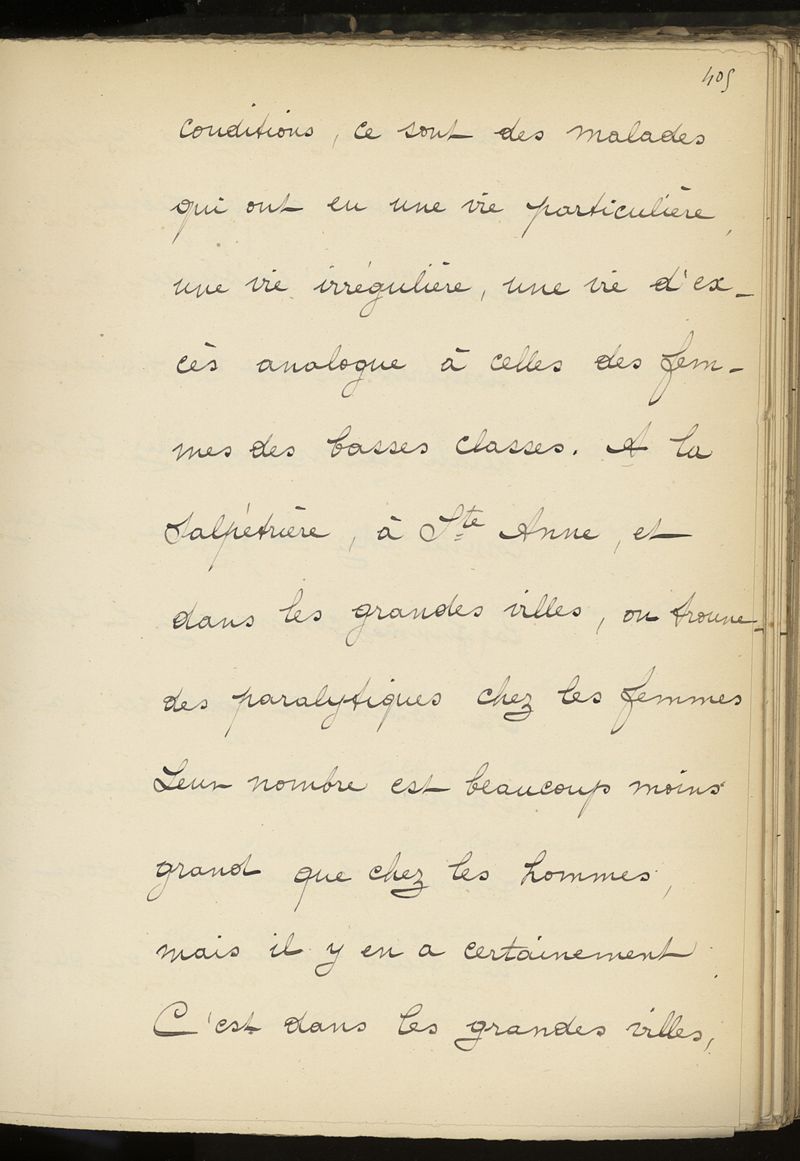 405
conditions, ce sont des malades
qui ont eu une vie particulière,
une vie irrégulière, une vie d'ex-
cès analogue à celles des fem-
mes des basses classes. A la
Salpêtrière, à Ste Anne, et
dans les grandes villes, on trouve
des paralytiques chez les femmes
Leur nombre est beaucoup moins
grand que chez les hommes,
mais il y en a certainement.
C'est dans les grandes villes,